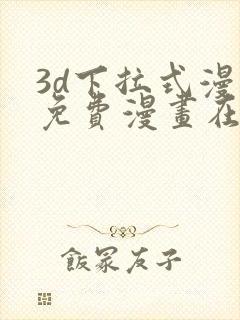 3d下拉式漫
免費漫畫在
飯冢友子